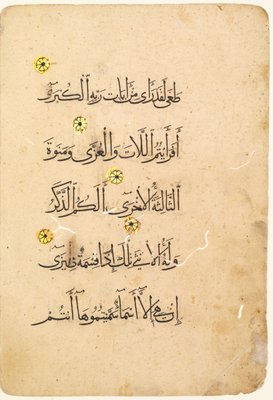 طغى لقد رأى من آيات ربه الكبرى
أفرأيتم اللات والعزى ومنوة
الثالثة الأخرى ألكم الذكر
وله الأنثى تلك إذا قسمة ضيزى
إن هي إلا أسماء سميتموها أنتم